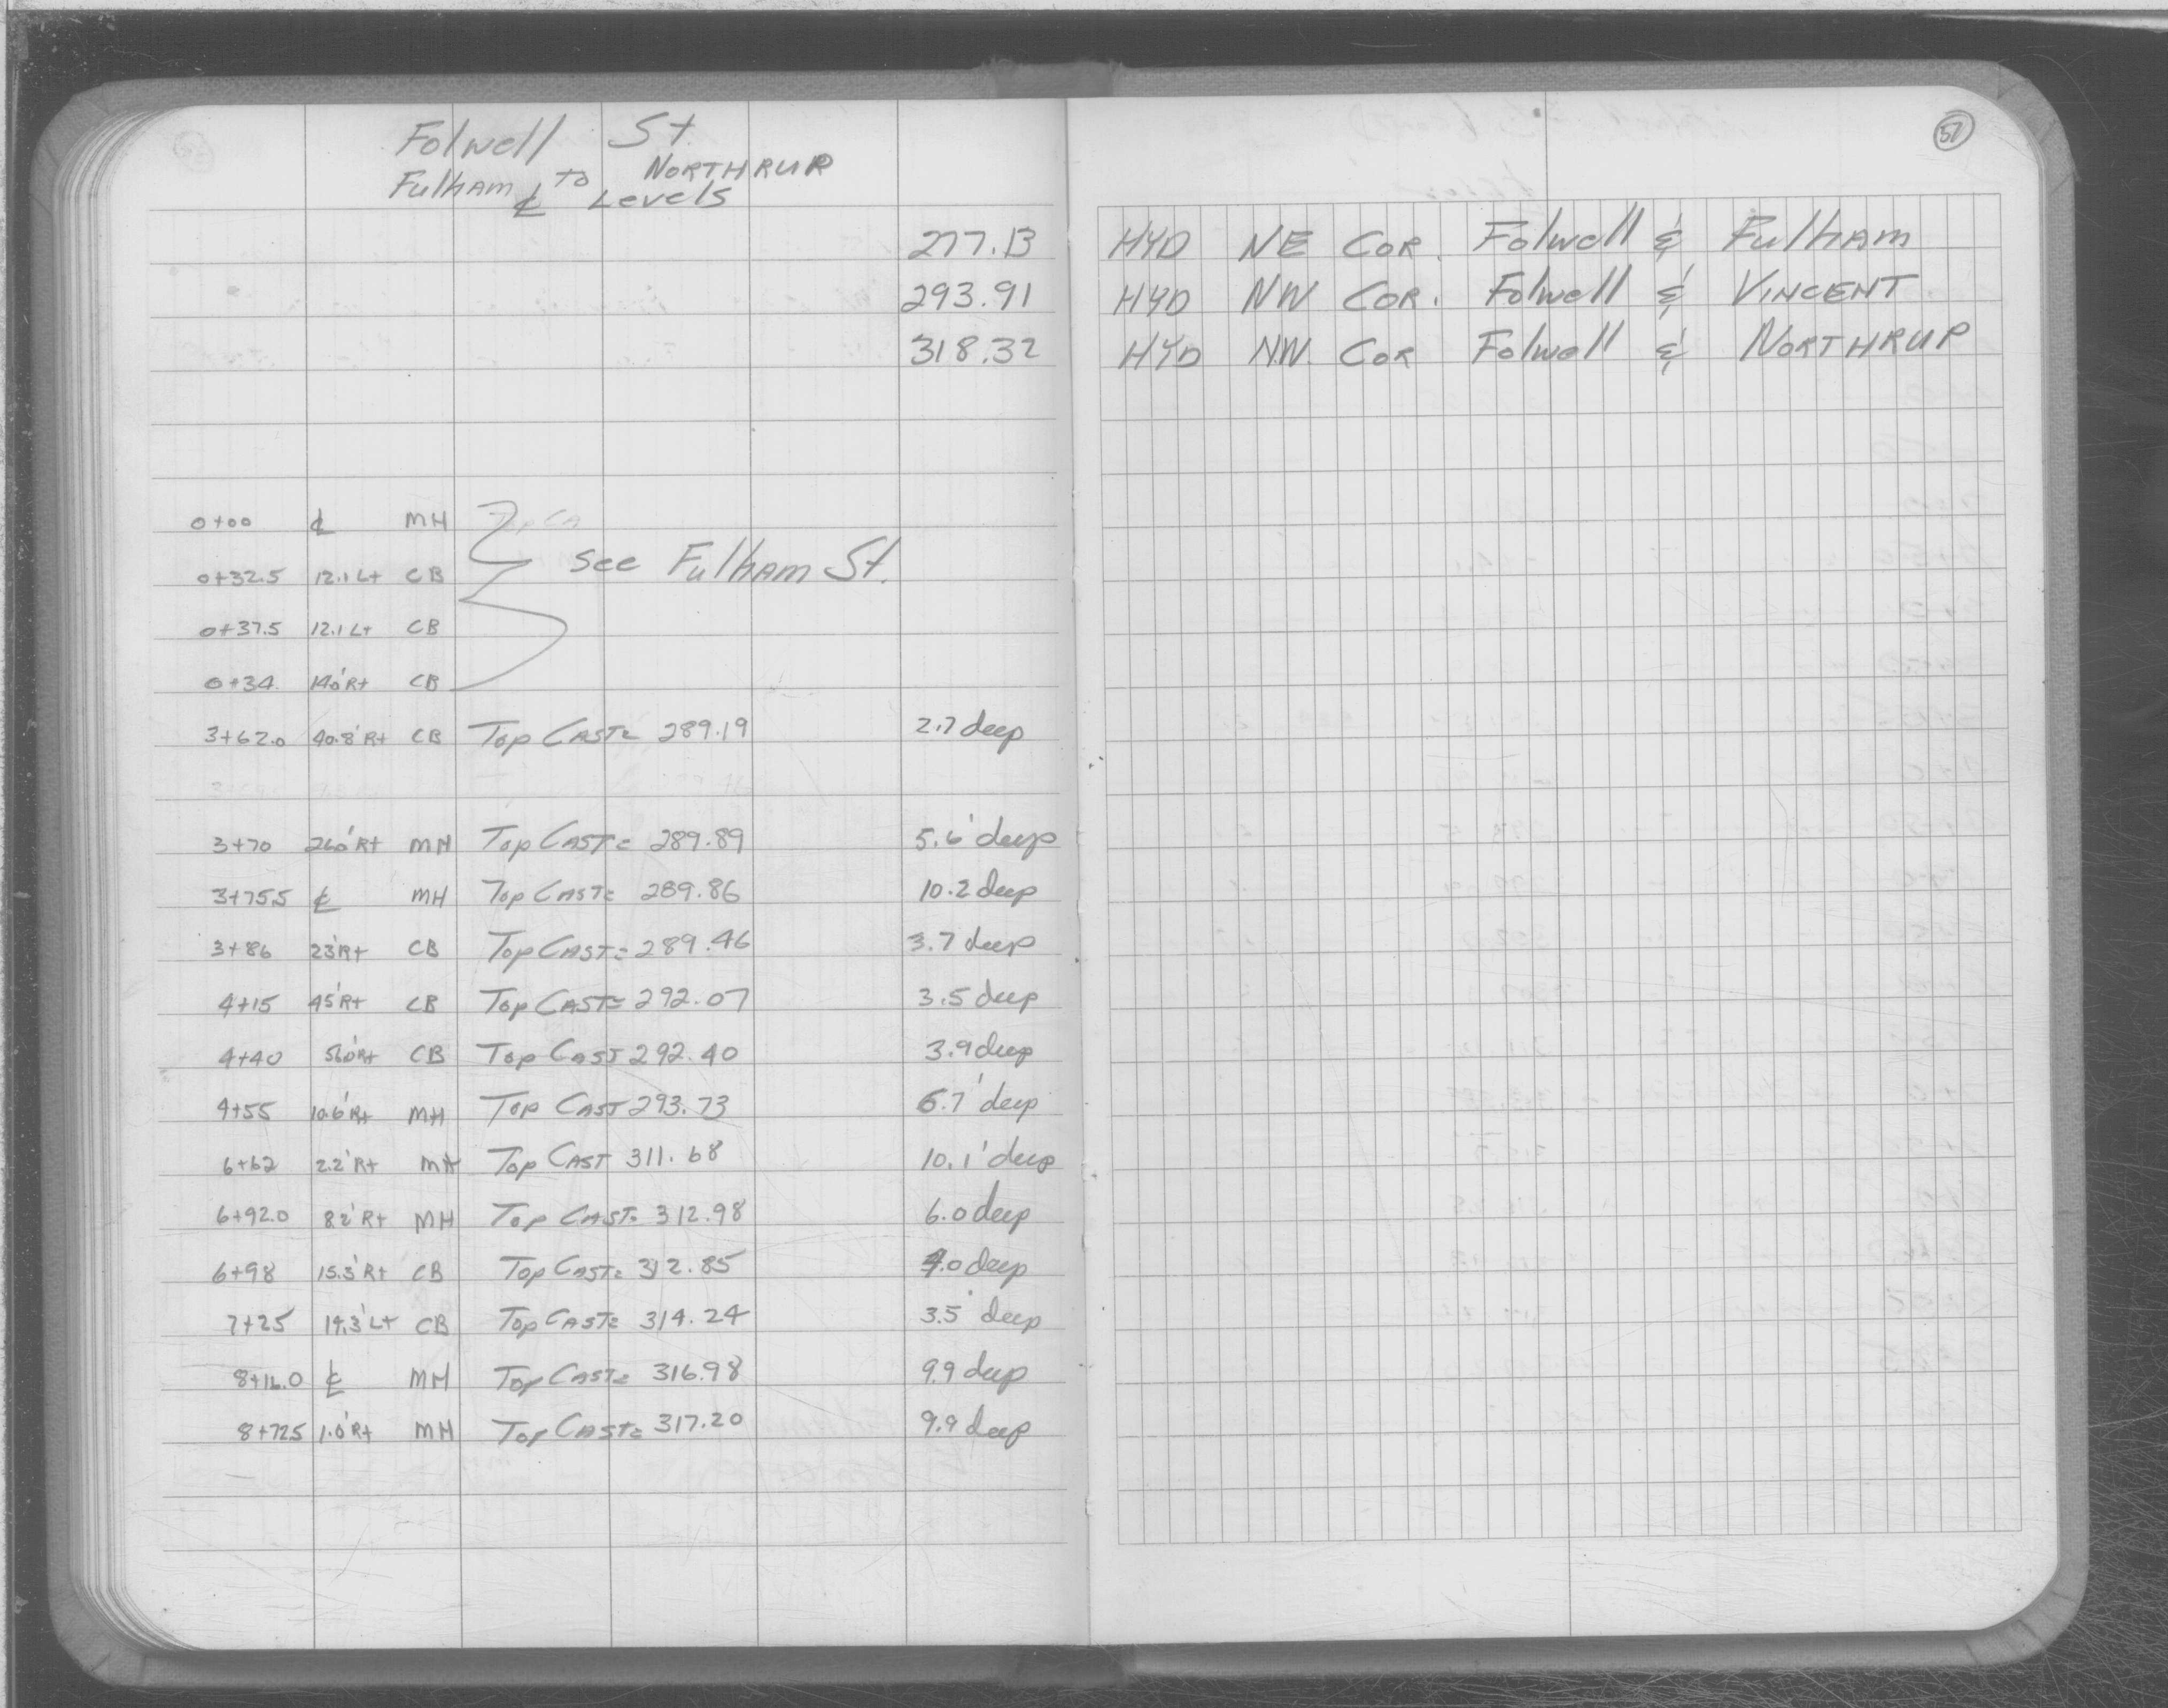 57
Folwell St.
Fulham to NORTHRUP
℄ Levels
277.13 HYD NE COR. Folwell & Fulham
293.91 HYD NW COR. Folwell & VINCENT
318.32 HYD N.W. COR Folwell & NORTHRUP
0+00 ℄ MH
see Fulham St.
0+32.5 12.1 Lt CB
0+37.5 12.1 Lt CB
0+34 14.0' Rt CB
3+62.0 40.8' Rt CB Top CAST= 289.19 2.7 deep
3+70 26.0' Rt MH Top CAST= 289.89 5.6' deep
3+75.5 ℄ MH Top CAST= 289.86 10.2 deep
3+86 23' Rt CB Top CAST= 289.46 3.7 deep
4+15 45' Rt CB Top CAST= 292.07 3.5 deep
4+40 56.0' Rt CB Top CAST 292.40 3.9 deep
4+55 10.6' Rt MH Top CAST 293.73 6.7' deep
6+62 2.2' Rt MH Top CAST 311.68 10.1' deep
6+92.0 8.2' Rt MH Top CAST= 312.98 6.0 deep
6+98 15.3' Rt CB Top CAST= 312.85 4.0 deep
7+25 14.3' Lt CB Top CAST= 314.24 3.5' deep
℄ MH Top CAST= 316.98 9.9 deep
8+72.5 1.0' Rt MH Top CAST= 317.20 9.9 deep